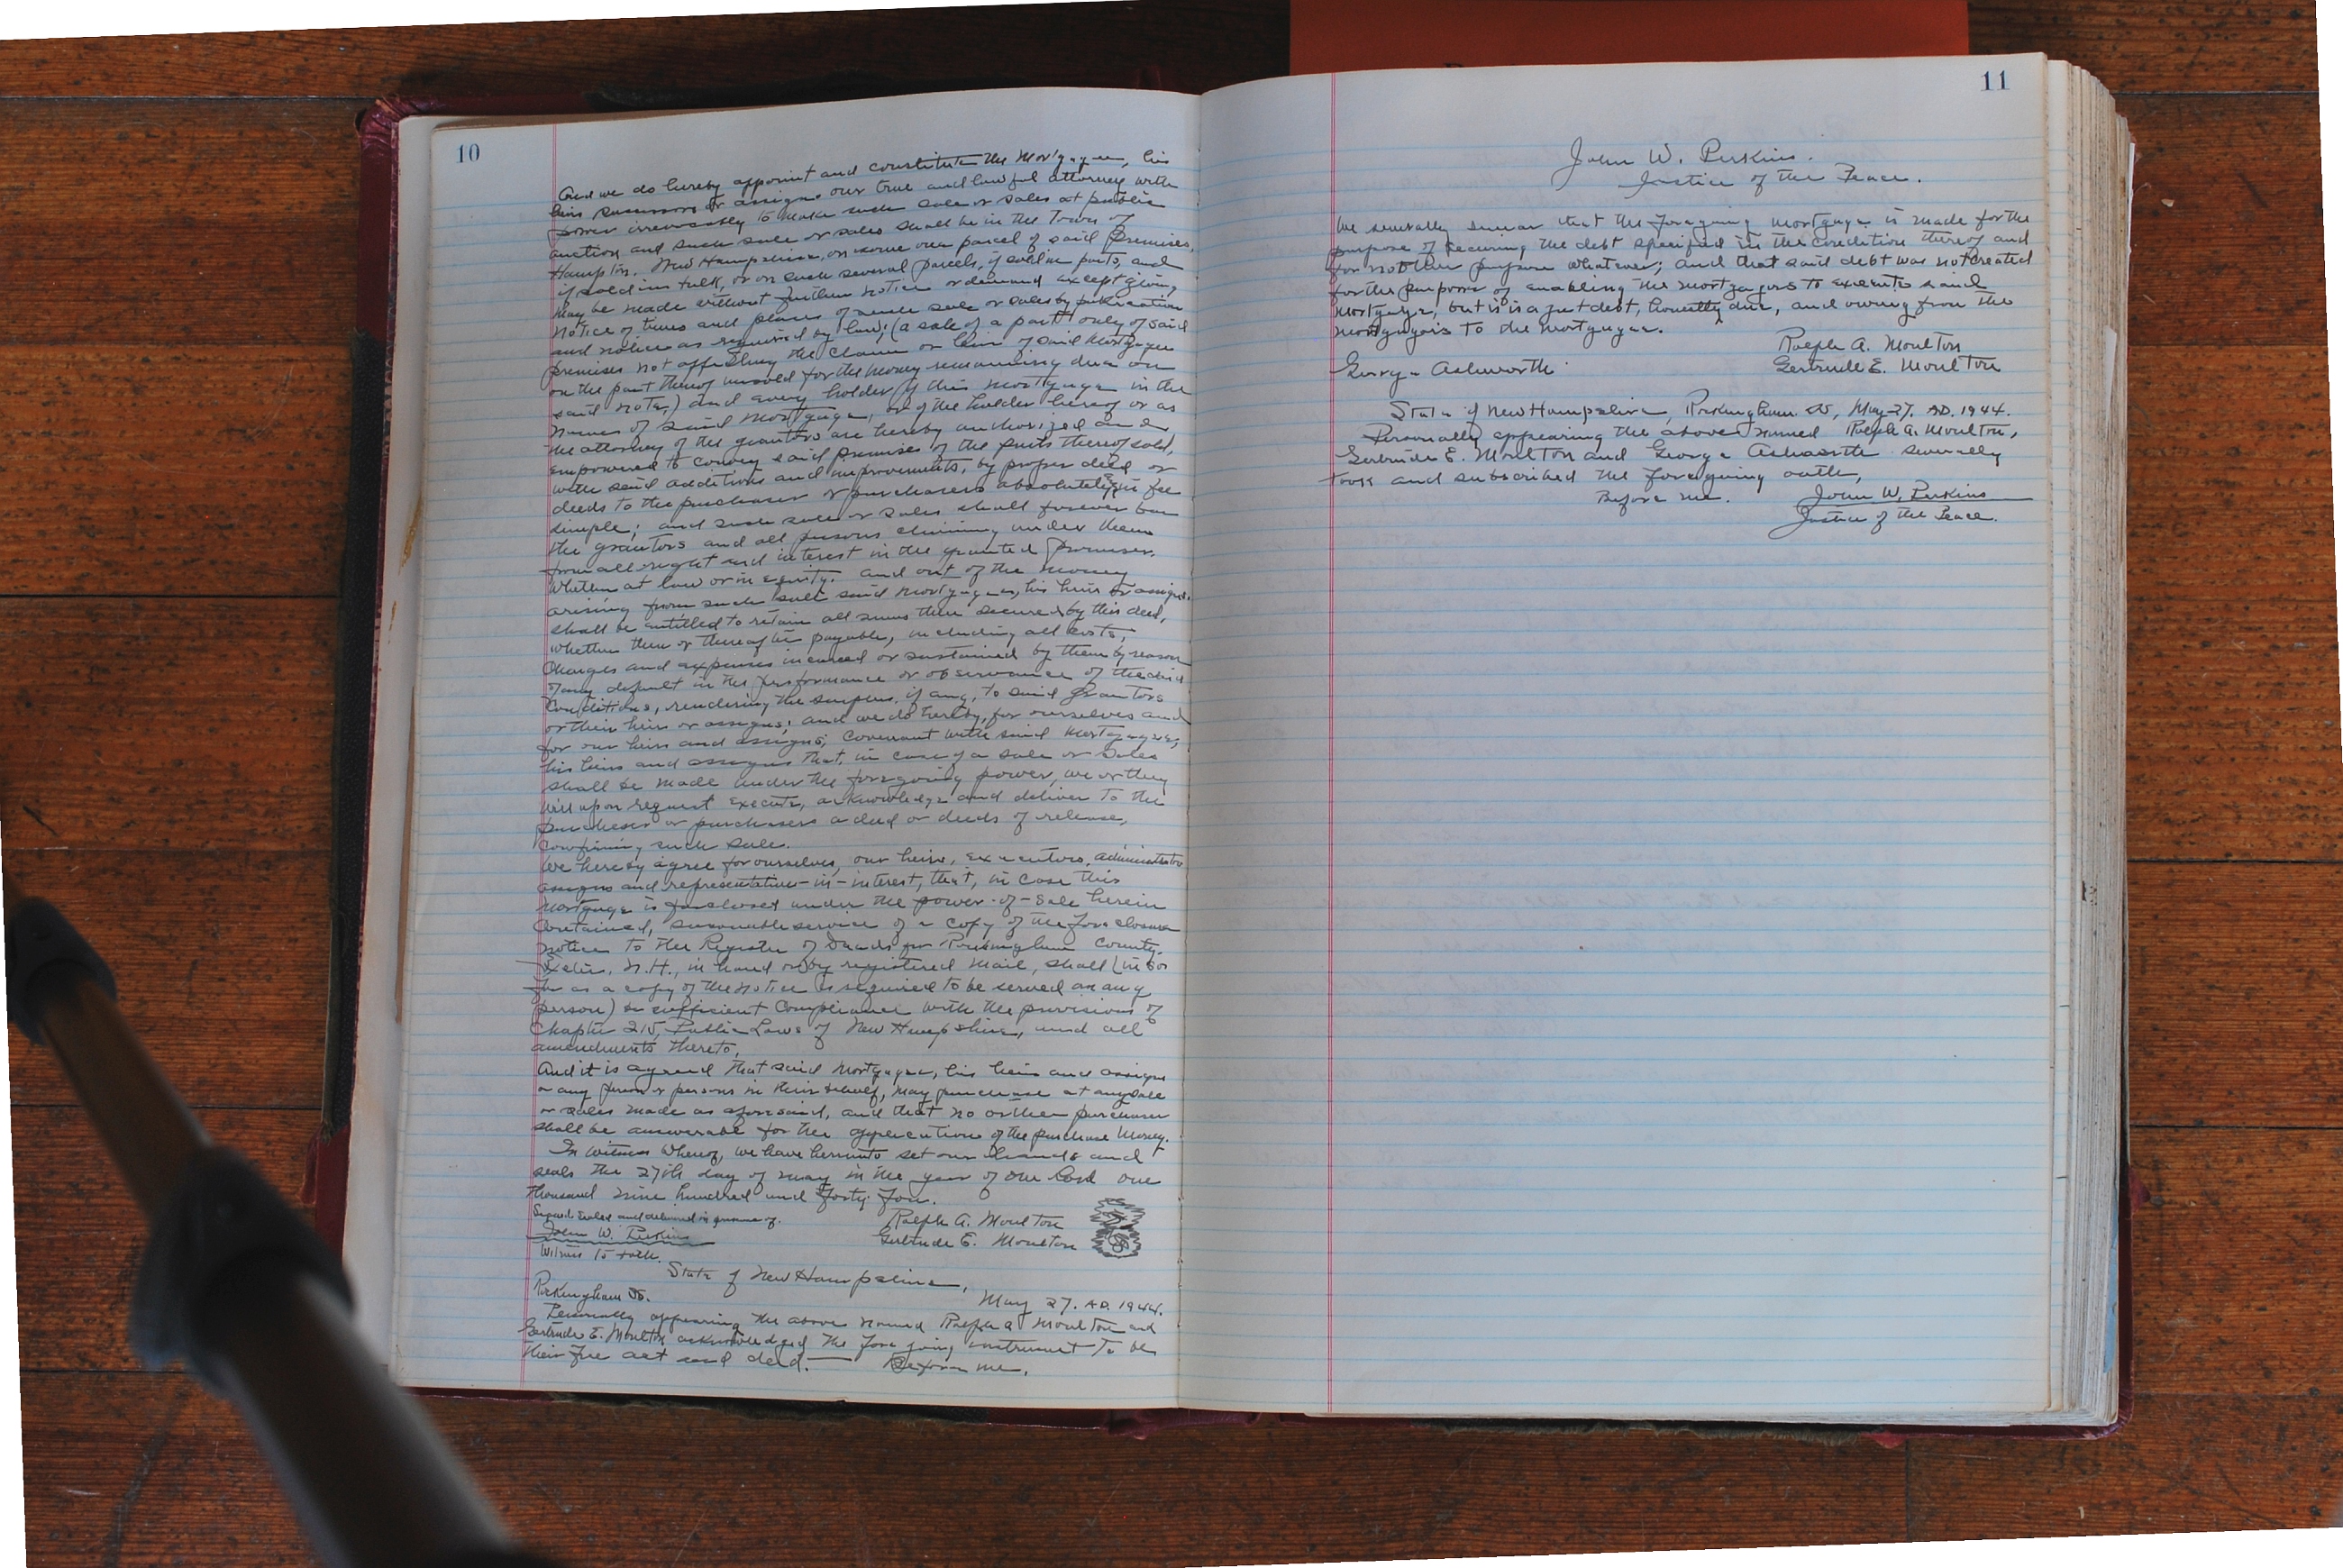 10
And we do hereby appoint and constitute the Mortgagee, his
heirs successors or assigns our true and lawful attorney with
power irrevocably to make such sale or sales at public
auction and such sale or sales shall be in the Town of
Hampton, New Hampshire, on some one parcel of said premises,
if sold in bulk, or on such several parcels, if sold in parts, and
may be made without further notice or demand except giving
notice of times and places of such sale or sales by publication
and notice as required by law; (a sale of a part only of said
premises not affecting the claim or lien of said Mortgagee
on the part thereof unsold for the money remaining due on
said note,) and every holder of this mortgage in the
names of said Mortgagee, or of the holder hereof or as
the attorney of the grantors are hereby authorized and
empowered to convey said premises of the parts thereof sold,
with said additions and improvements, by proper deed or
deeds to the purchaser or purchasers absolutely in fee
simple; and such sale or sales shall forever bar
the grantors and all persons claiming under them
from all right and interest in the granted premises,
whether at law or in equity. and out of the money
arising from such sale said mortgagee, his heirs or assigns,
shall be entitled to retain all sums then secured by this deed,
whether then or thereafter payable, including all costs,
charges and expenses incurred or sustained by them by reason
of any default in the performance or observance of the said
Conditions, rendering the surplus, if any, to said Grantors
or their heirs or assigns; and we do hereby, for ourselves and
for our heirs and assigns, covenant with said Mortgagee,
his heirs and assigns that, in case of a sale or sales
shall be made under the foregoing power, we or they
will upon request execute, acknowledge and deliver to the
purchaser or purchasers a deed or deeds of release,
confirming such sale.
We hereby agree for ourselves, our heirs, executors, administrators
assigns and representatives-in-interest, that, in case this
mortgage is foreclosed under the power-of-sale herein
contained, seasonable service of a copy of the foreclosure
notice to the Register of Deeds for Rockingham County,
Exeter, N.H., in hand or by registered mail, shall (in so
far as a copy of the notice is required to be served on any
person) be sufficient compliance with the provisions of
Chapter 215, Public Laws of New Hampshire, and all
amendments thereto,
And it is agreed that said Mortgagee, his heirs and assigns
or any person or persons in their behalf, may purchase at any sale
or sales made as aforesaid, and that no other purchaser
shall be answerable for the application of the purchase money.
In Witness Whereof, we have hereunto set our hands and
seals the 27th day of may in the year of our Lord one
thousand nine hundred and forty four.
Signed, Sealed and delivered in presence of. Ralph A. Moulton
John W. Perkins Gertrude E. Moulton
Witness to both.
State of New Hampshire,
Rockingham SS. May 27. AD. 1944.
Personally appearing the above named Ralph A Moulton and
Gertrude E. Moulton acknowledged the foregoing instrument to be
their free act and deed. — Before me,
11
John W. Perkins.
Justice of the Peace.
We severally swear that the foregoing mortgage is made for the
purpose of securing the debt specified in the condition thereof and
for no other purpose whatever; and that said debt was not created
for the purpose of enabling the mortgagors to execute said
mortgage, but is is a just debt, honestly due, and owing from the
mortgagors to the mortgagee.
Ralph A. Moulton
George Ashworth Gertrude E. Moulton
State of New Hampshire, Rockingham SS, May 27. AD. 1944.
Personally appearing the above named Ralph A. Moulton,
Gertrude E. Moulton and George Ashworth severally
took and subscribed the foregoing oath,
Before me. John W. Perkins
Justice of the Peace.